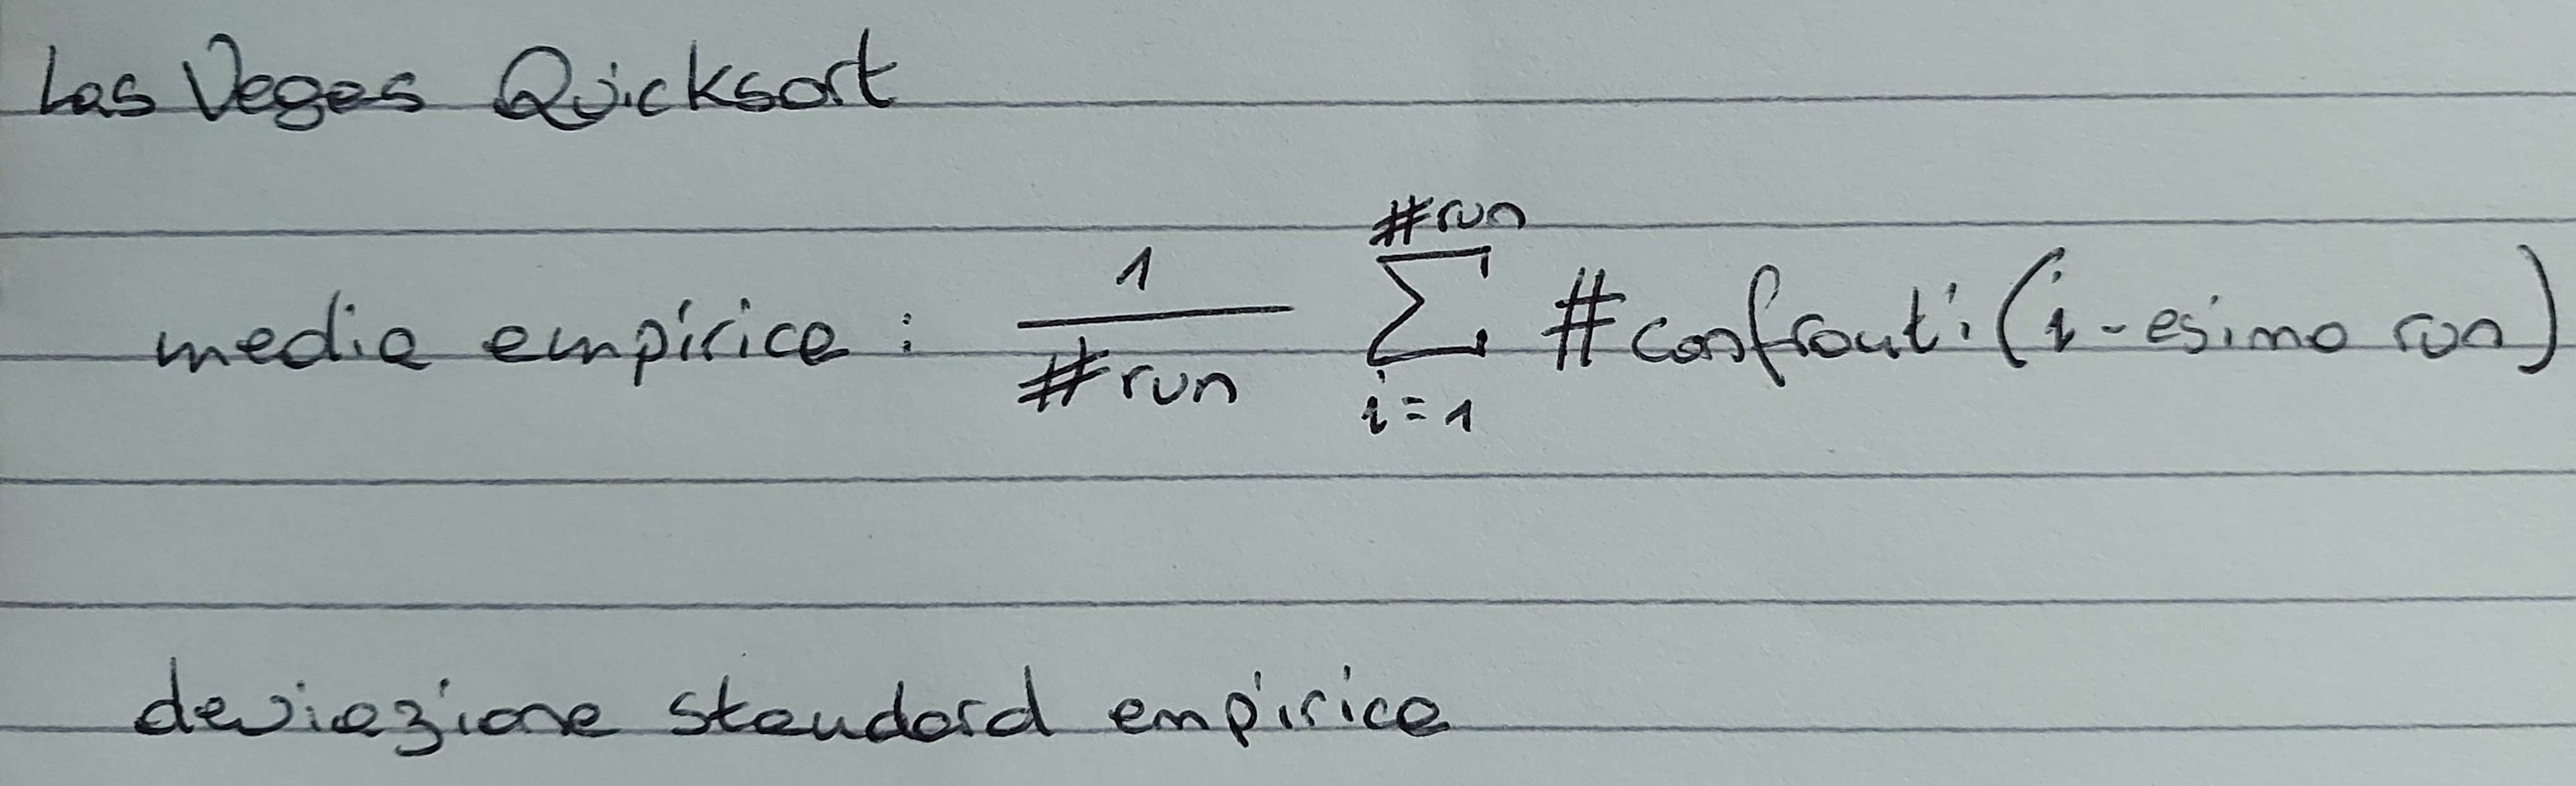 Las Vegas Quicksort
media empirica : 1/#run ∑_{i=1}^{#run} #confronti (i-esimo run)
deviazione standard empirica